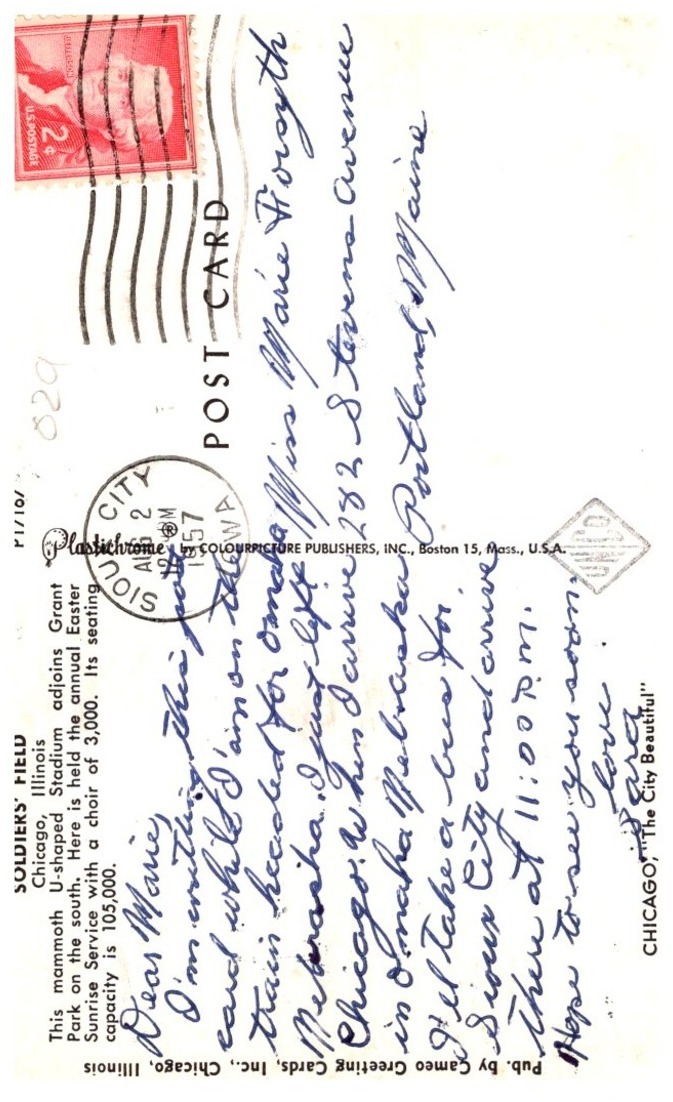 P17167
SOLDIERS' FIELD
Chicago, Illinois
This mammoth U-shaped Stadium adjoins Grant
Park on the south. Here is held the annual Easter
Sunrise Service with a choir of 3,000. Its seating
capacity is 105,000.
Dear Marie,
I'm writing this post
card while I'm on the
train headed for Omaha
Nebraska. I just left
Chicago. When I arrive
in Omaha Nebraska
I'll take a bus for
Sioux City and arrive
there at 11:00 P.M.
Hope to see you soon.
Love
Sara
CHICAGO, "The City Beautiful"
Pub. by Cameo Greeting Cards, Inc., Chicago, Illinois
Plastichrome ® by COLOURPICTURE PUBLISHERS, INC., Boston 15, Mass., U.S.A.
POST CARD
SIOUX CITY
AUG 2
12 PM
1957
IOWA
829
JEFFERSON
2¢
U.S. POSTAGE
Miss Marie Forsyth
282 Stevens Avenue
Portland, Maine